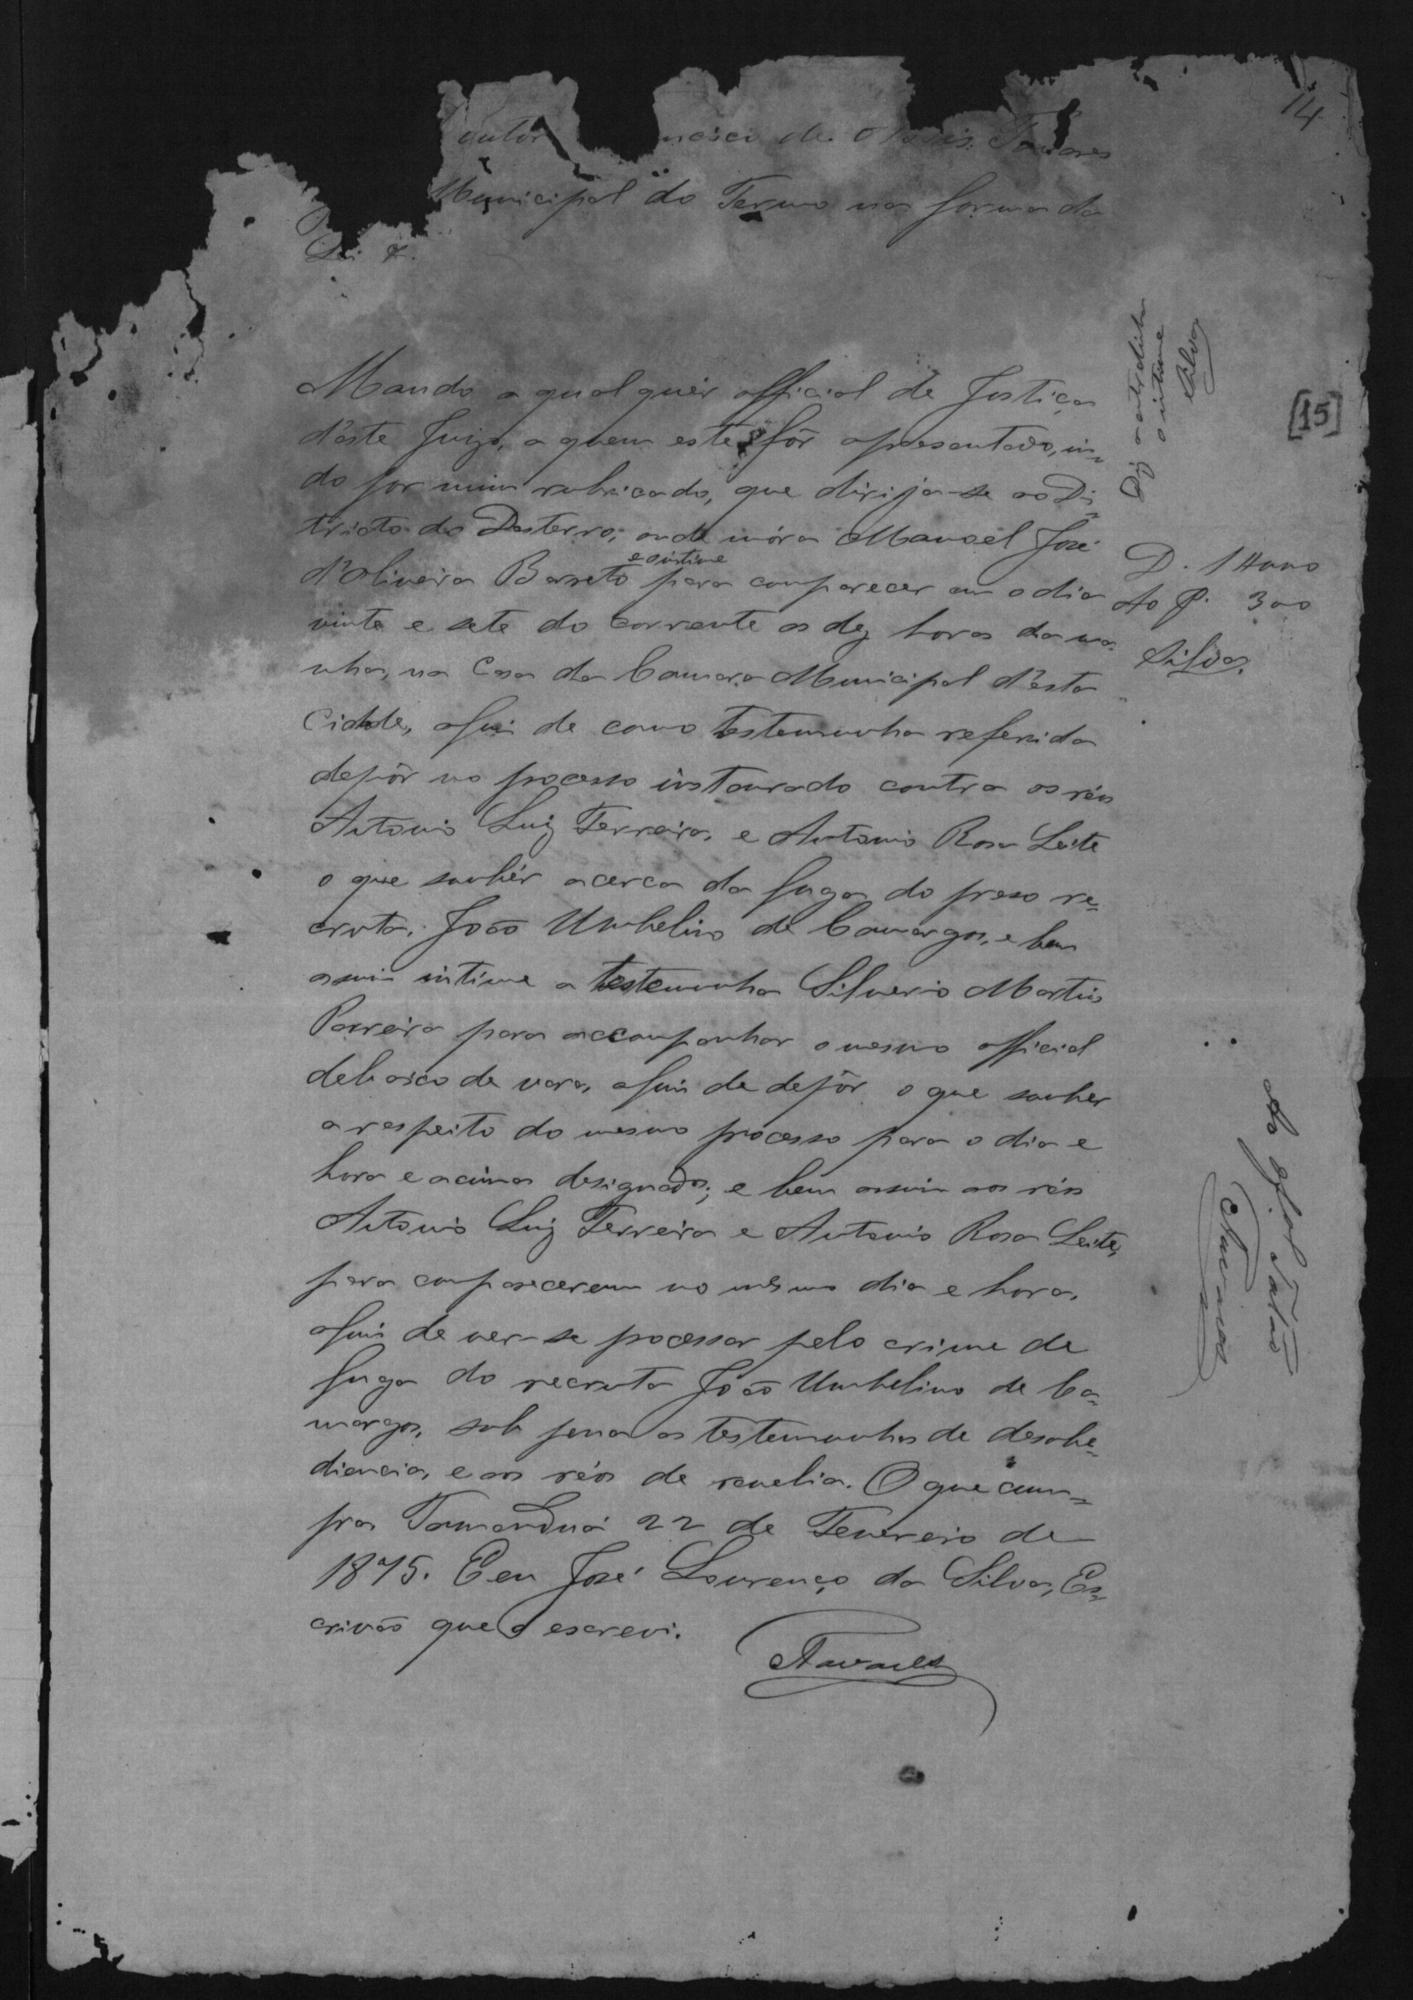 14
Municipal do Termo na forma da
Lei &.
Mando a qualquér official de Justiça
d'este Juizo, a quem este fôr apresentado, in-
do por mim rubricado, que dirija-se ao Di-
tricto do Desterro, onde móra Manoel José
d'Oliveira Barreto e o intime para comparecer em o dia
vinte e sete do corrente as dez horas da ma-
nha, na Casa da Camara Municipal d'esta
Cidade, afim de como testemunha referida
depôr no processo instaurado contra os réos
Antonio Luiz Ferreira, e Antonio Rosa Leite
o que soubér acerca da fuga do preso re-
cruta, João Umbelino de Camargos, e bem
assim intime a testemunha Silverio Martins
Parreira para accompanhar o mesmo official
debaico de vara, afim de depôr o que souber
a respeito do mesmo processo para o dia e
hora e acima designados; e bem assim aos réos
Antonio Luiz Ferreira e Antonio Rosa Leite,
para comparecerem no mesmo dia e hora,
afim de ver-se processar pelo crime de
fuga do recruta João Umbelino de Ca-
margos, sob pena as testemunhas de desobe-
diencia, e aos réos de revelia. O que cum-
pra Tamanduá 22 de Fevereiro de
1875. E eu José Lourenço da Silva, Es-
crivão que o escrevi.
Tavares
o intime
Silva
[15]
D. 1$000
Ao P. 300
Silva
Tavares